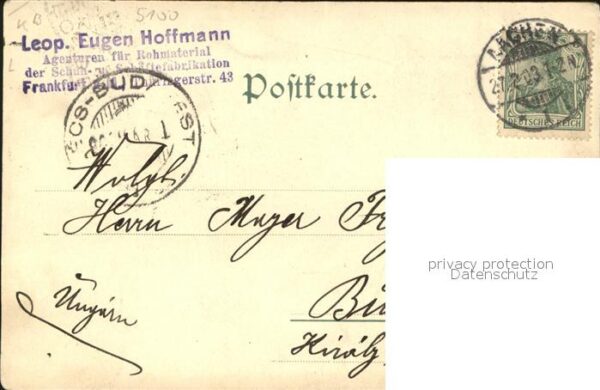 5100
Leop. Eugen Hoffmann
Agenturen für Rohmaterial
der Schuh- u. Schäftefabrikation
Frankfurt
str. 43
Postkarte.
AACHEN
DEUTSCHES REICH
CS-BUD
ST
Wolgb.
Herrn Mayer
Ungarn
Bu
Király
privacy protection
Datenschutz